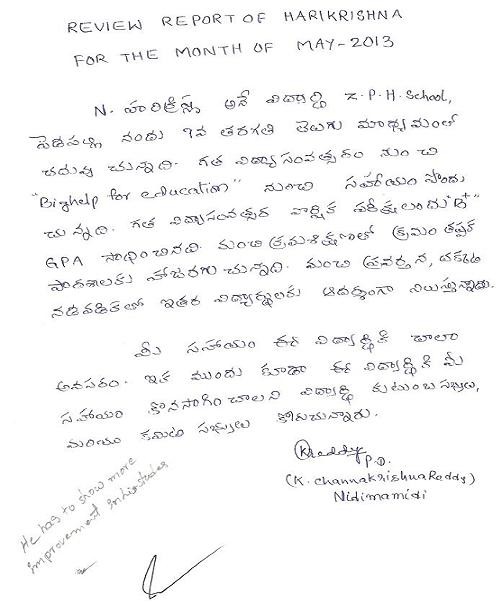 REVIEW REPORT OF HARIKRISHNA
FOR THE MONTH OF MAY-2013
N. హరిక్రిష్ణ అనే విద్యార్థి Z.P.H. School,
పెదపల్లి నందు 9వ తరగతి తెలుగు మాధ్యమంలో
చదువు చున్నాది. గత విద్యాసంవత్సరం నుంచి
"Bighelp for education" నుంచి సహాయం పొందు
చున్నది. గత విద్యాసంవత్సర వార్షిక పరీక్షలందు "B+"
GPA సాధించినది. మంచి క్రమశిక్షణతో క్రమం తప్పక
పాఠశాలకు హాజరగుచున్నది. మంచి ప్రవర్తన, చక్కటి
నడవడికతో ఇతర విద్యార్థులకు ఆదర్శంగా నిలుస్తున్నాడు.
మీ సహాయం ఈ విద్యార్థికి చాలా
అవసరం. ఇక ముందు కూడా ఈ విద్యార్థికి మీ
సహాయం కొనసాగించాలని విద్యార్థి కుటుంబ సభ్యులు,
మరియు కమిటి సభ్యులు కోరుచున్నారు.
KReddy
P.D.
(K. channakrishnaReddy)
Nidimamidi
He has to show more
improvement in his studies